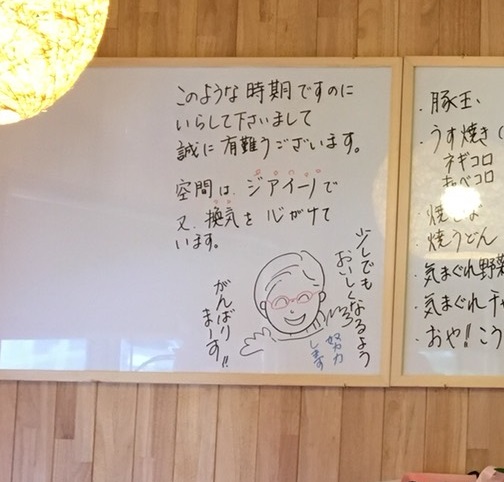 このような時期ですのに
いらして下さいまして
誠に有難うございます。
空間は、ジアイーノで
又、換気を心がけて
います。
少しでも
おいしくなるよう
努力
します
がんばり
まーす!!
・豚玉、
・うす焼き(
ネギコロ
・焼うどん
・気まぐれ野菜
・気まぐれチャ
・おや!!こう